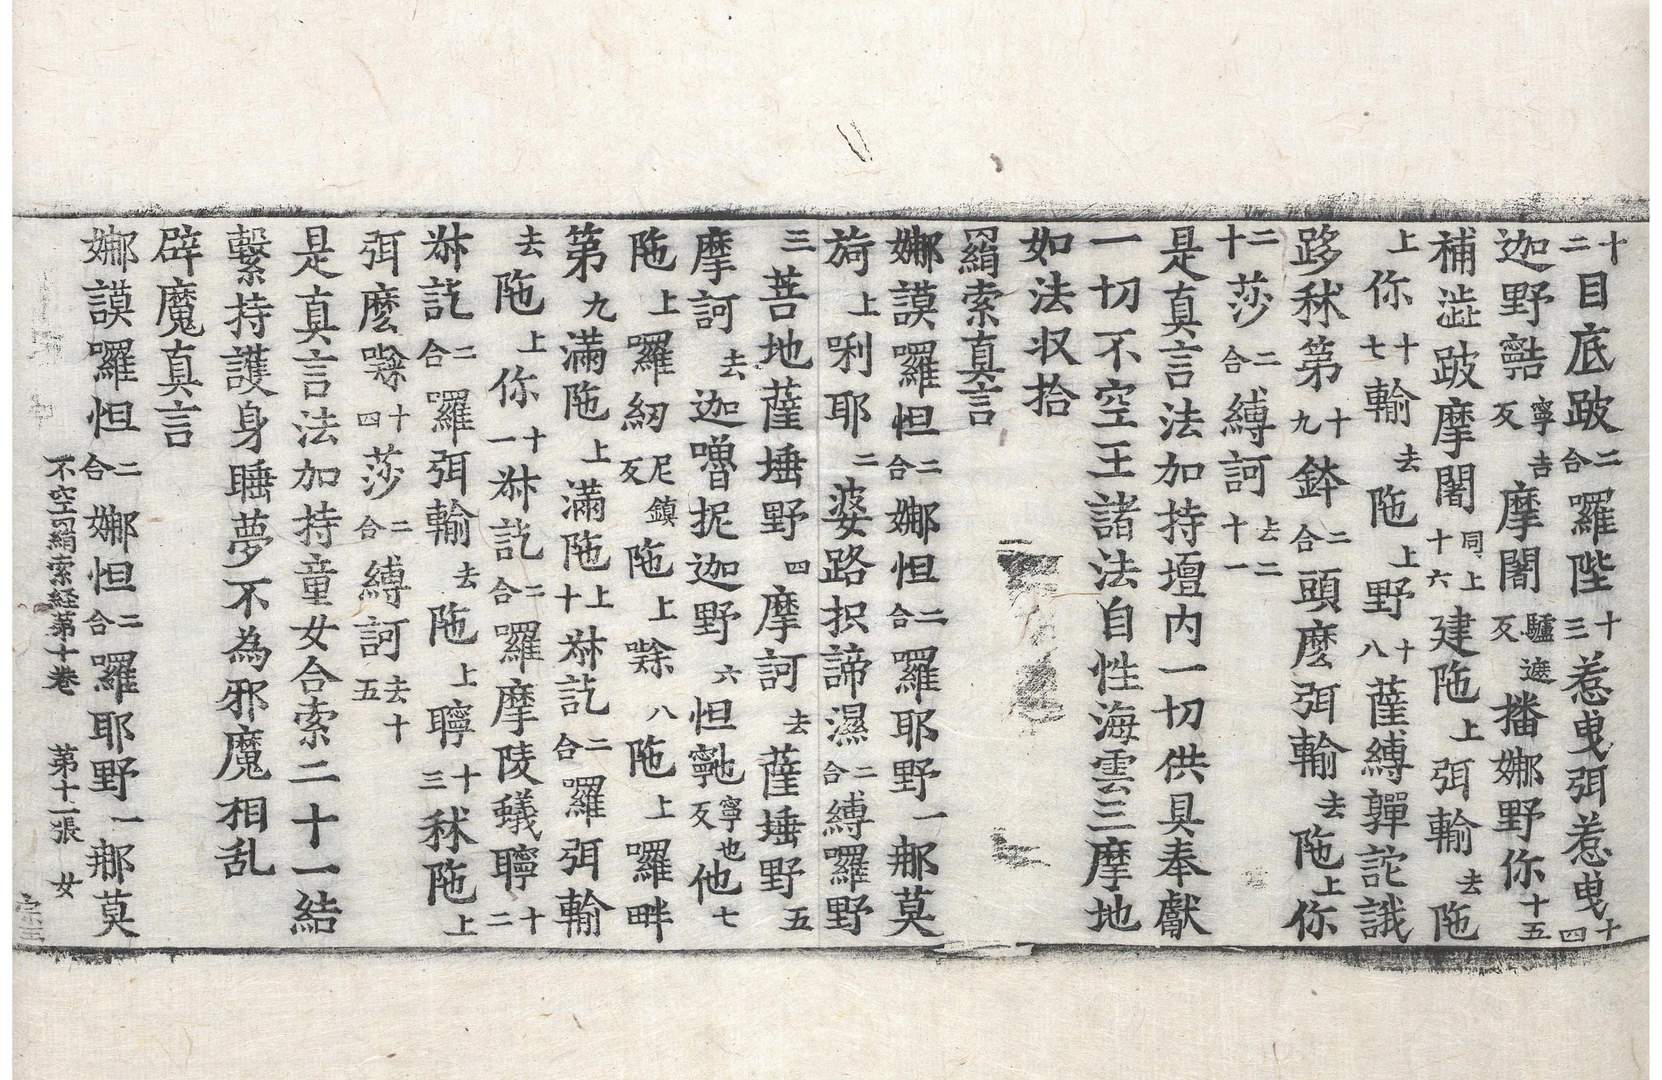 十二目底跛二合羅陛十三惹曳弭惹曳十四
迦野𩕳寧吉反摩闇驢遮反播娜野你十五
補澁跛摩闍同上十六建陁上弭輸去陁
上你十七輸去陁上野十八薩縛嚲詑誐
跢秫第十九鉢二合頭麽弭輸去陁上你
二十莎二合縛訶去二十一
是真言法加持壇內一切供具奉獻
一切不空王諸法自性海雲三摩地
如法収拾
羂索真言
娜謨囉怛二合娜怛二合囉耶野一那莫
旖上唎耶二婆路抧諦濕二合縛囉野
三菩地薩埵野四摩訶去薩埵野五
摩訶去迦嚕抳迦野六怛寧也反他七
陁上囉紉尼鎮反陁上㘑八陁上囉畔
第九滿陁上滿陁上十紇二合囉弭輸
去陁上你十一紇二合囉摩陵蟻聹十二
紇二合囉弭輸去陁上聹十三秫陁上
弭麽㘑十四莎二合縛訶去十五
是真言法加持童女合索二十一結
繫持護身睡夢不為邪魔相乱
辟魔真言
娜謨囉怛二合娜怛二合囉耶野一那莫
不空羂索経第十卷 第十一張 女